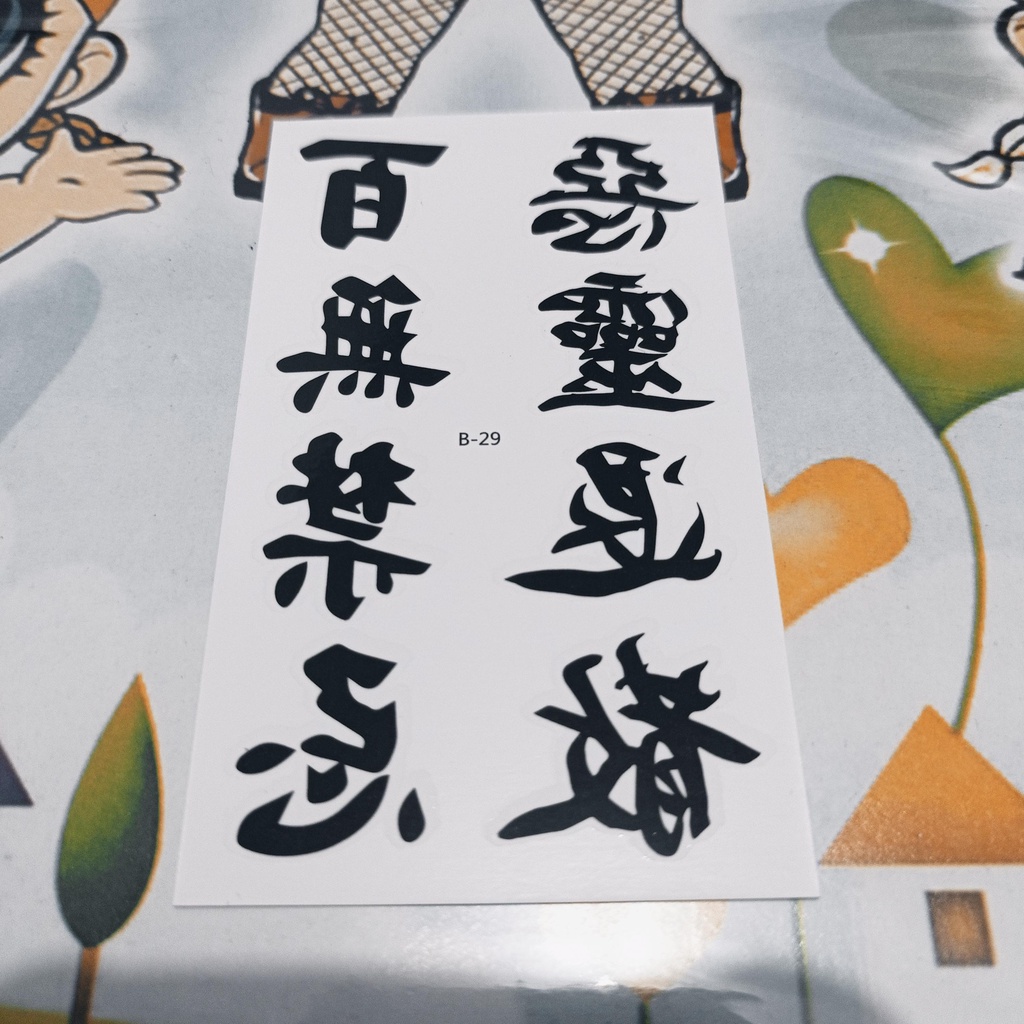 惡靈退散
百無禁忌
B-29